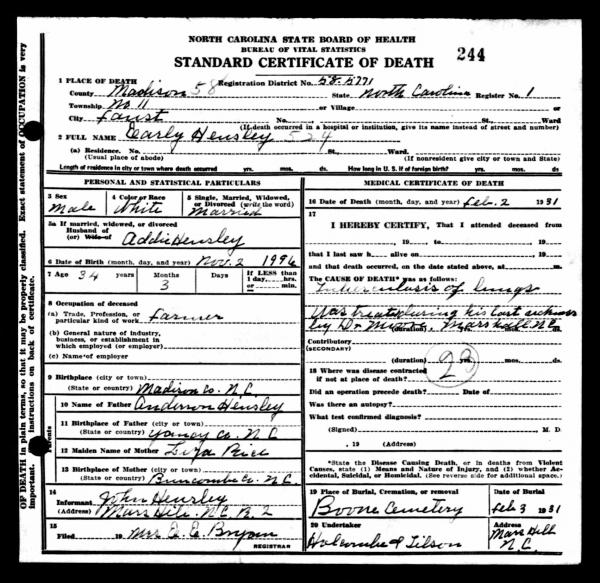 NORTH CAROLINA STATE BOARD OF HEALTH
BUREAU OF VITAL STATISTICS
STANDARD CERTIFICATE OF DEATH
244
1 PLACE OF DEATH
Registration District No. 58-5771
County Madison 58 State North Carolina Register No. 1
Township No 11 or Village or
City Faust No. St., Ward.
(If death occurred in a hospital or institution, give its name instead of street and number)
2 FULL NAME Early Hensley
(a) Residence. No. St., Ward.
(Usual place of abode) (If nonresident give city or town and State)
Length of residence in city or town where death occurred yrs. mos. ds. How long in U. S. if of foreign birth? yrs. mos. ds.
PERSONAL AND STATISTICAL PARTICULARS
3 Sex
Male
4 Color or Race
White
5 Single, Married, Widowed, or Divorced (write the word)
Married
5a If married, widowed, or divorced
Husband of
(or) Wife of Addie Hensley
6 Date of Birth (month, day, and year) Nov. 2 1996
7 Age 34 years
Months 3
Days
If LESS than
1 day, hrs.
or min.
8 Occupation of deceased
(a) Trade, Profession, or
particular kind of work Farmer
(b) General nature of industry,
business, or establishment in
which employed (or employer)
(c) Name of employer
9 Birthplace (city or town)
(State or country) Madison Co. N.C.
Parents
10 Name of Father Anderson Hensley
11 Birthplace of Father (city or town)
(State or country) Yancy Co. N.C
12 Maiden Name of Mother Liza Rice
13 Birthplace of Mother (city or town)
(State or country) Buncombe Co. N.C.
14
Informant John Hensley
(Address) Mars Hill. N.C. R. 2
15
Filed , 19 Mrs E. E. Bryan
REGISTRAR
MEDICAL CERTIFICATE OF DEATH
16 Date of Death (month, day, and year) Feb. 2 1931
17
I HEREBY CERTIFY, That I attended deceased from
, 19 , to , 19
that I last saw h alive on , 19
and that death occurred, on the date stated above, at m.
The CAUSE OF DEATH* was as follows:
Tuberculosis of lungs
Was treated during his last sickness
by Dr , Marshall N.C.
Contributory
(SECONDARY)
(duration) yrs. mos. ds.
23
18 Where was disease contracted
if not at place of death?
Did an operation precede death? Date of
Was there an autopsy?
What test confirmed diagnosis?
(Signed) M. D.
, 19 (Address)
*State the Disease Causing Death, or in deaths from Violent
Causes, state (1) Means and Nature of Injury, and (2) whether Ac-
cidental, Suicidal, or Homicidal. (See reverse side for additional space.)
19 Place of Burial, Cremation, or removal
Boone Cemetery
Date of Burial
Feb 3 1931
20 Undertaker
Holcombe & Tilson
Address
Mars Hill
N.C.
OF DEATH in plain terms, so that it may be properly classified. Exact statement of OCCUPATION is very
important. instructions on back of certificate.